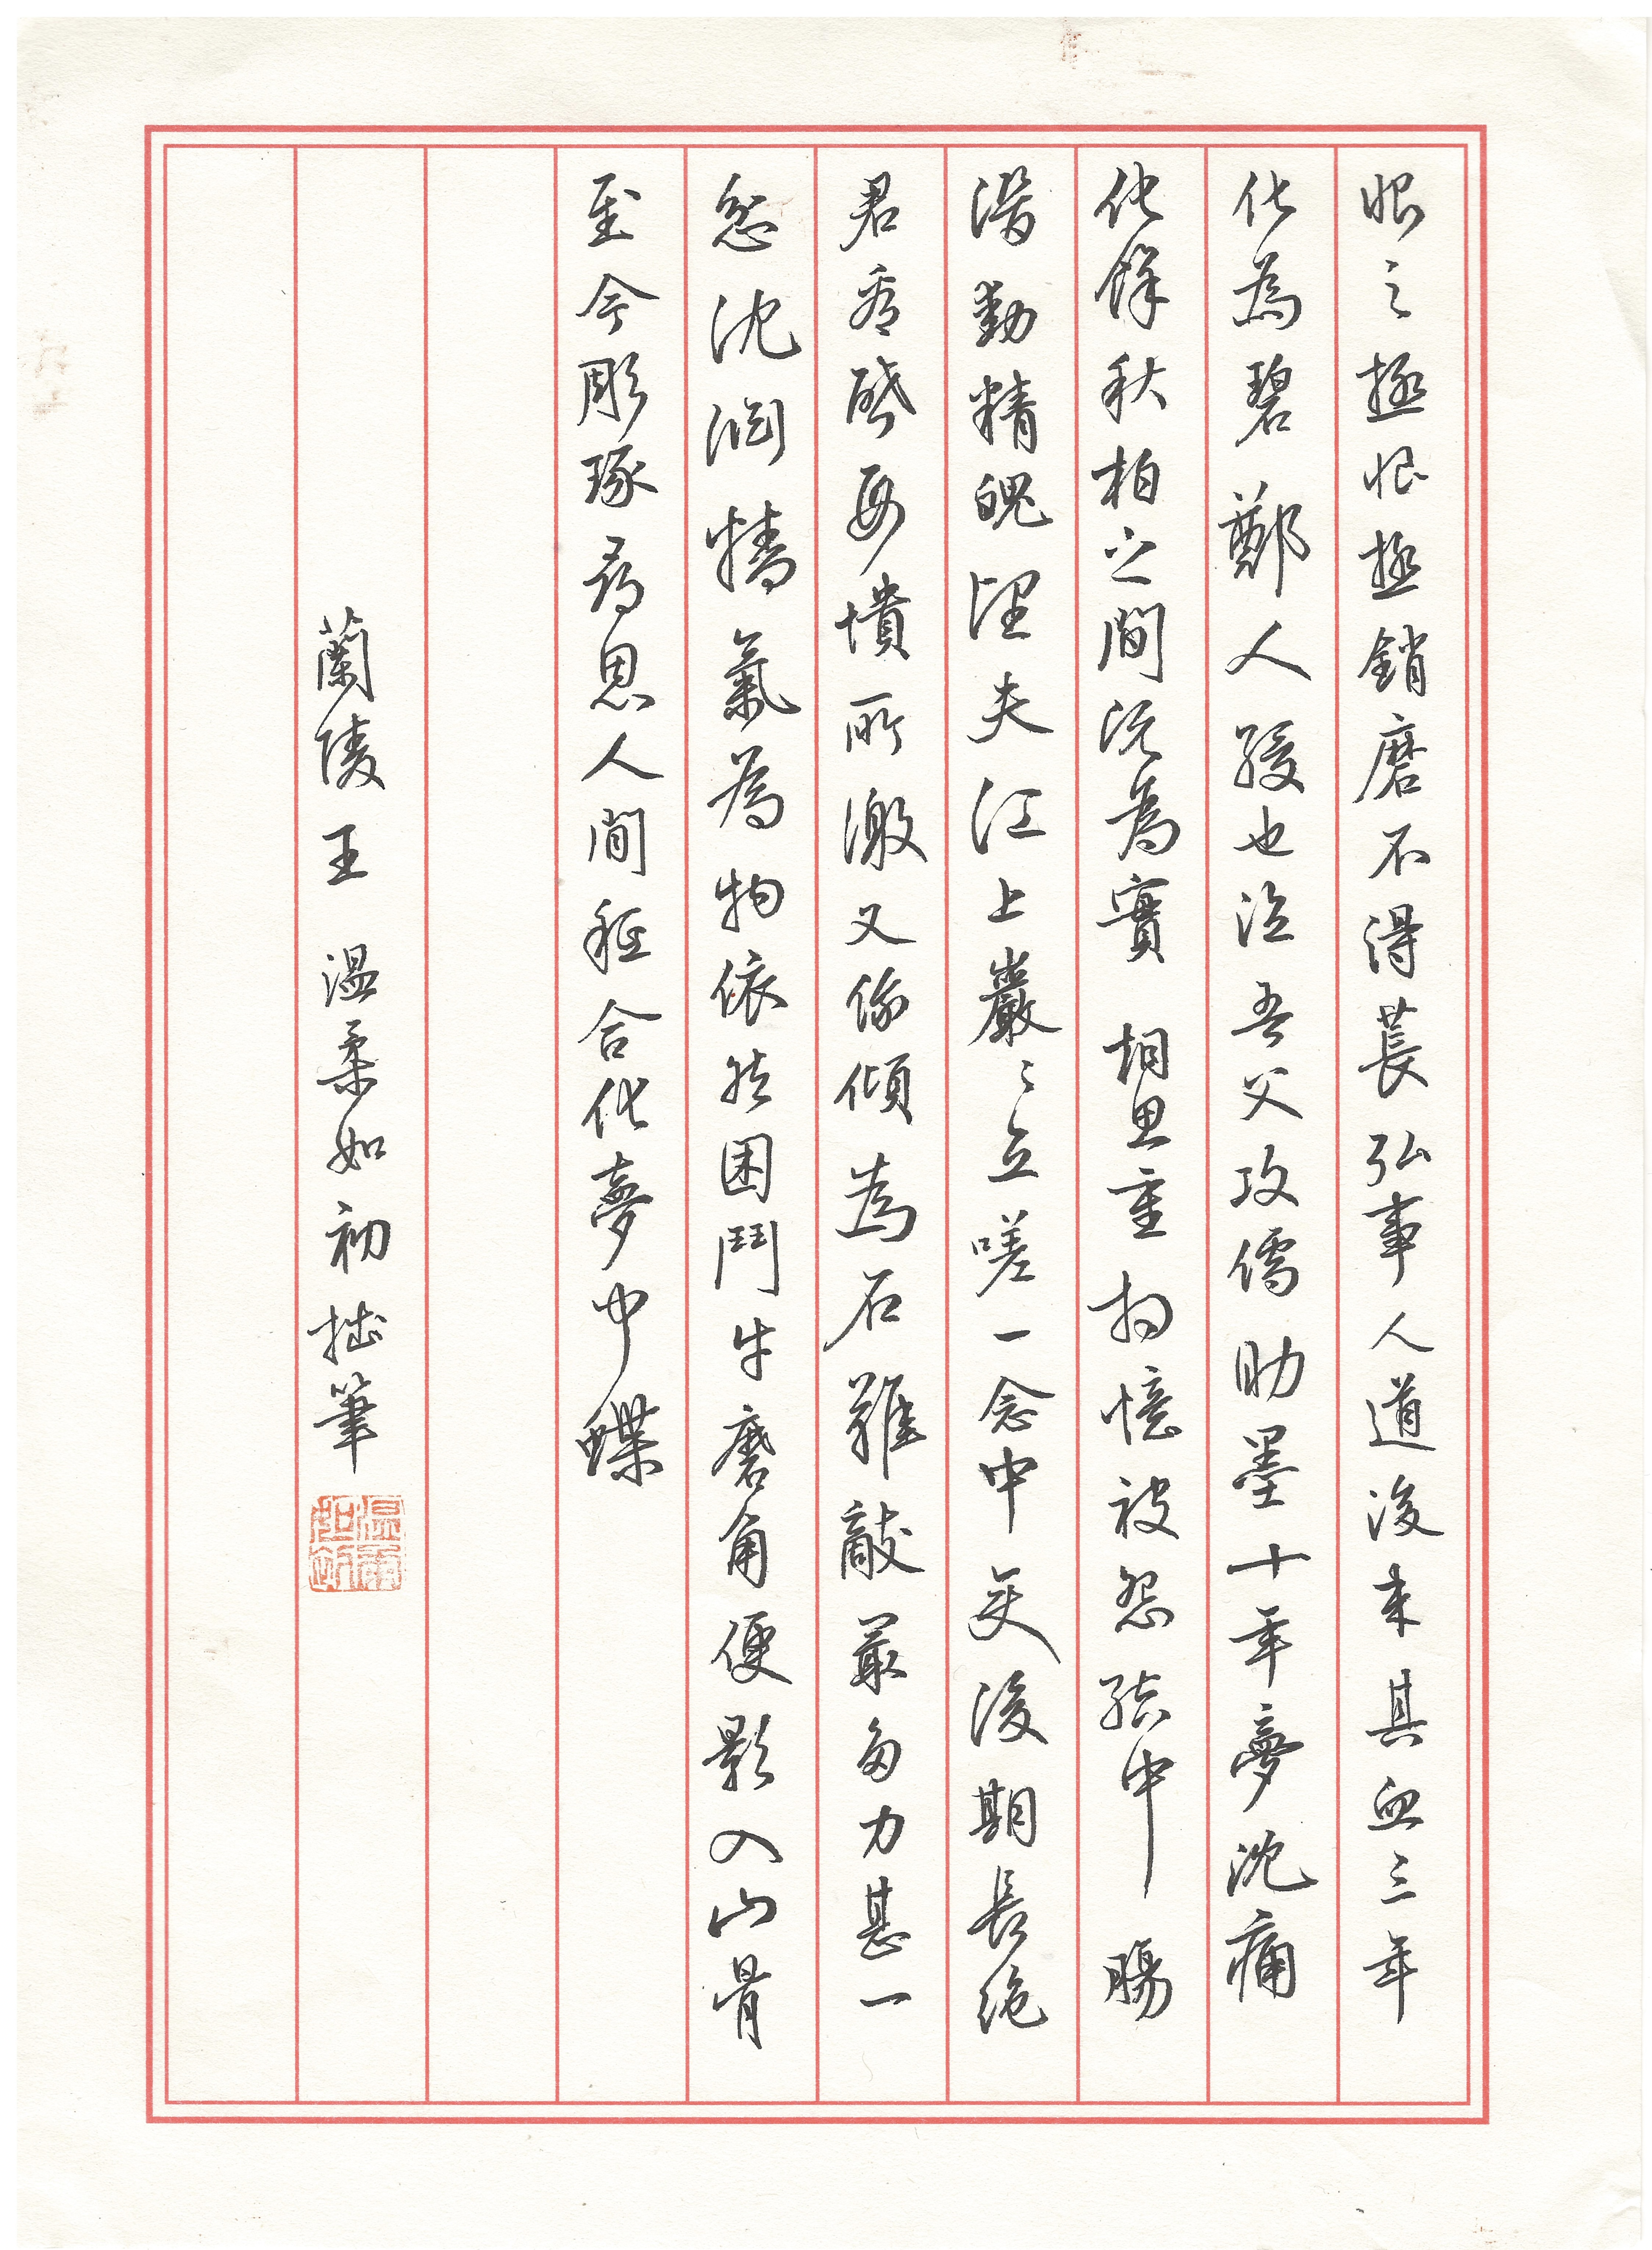 恨之極恨極銷磨不得萇弘事人道後来其血三年
化為碧鄭人緩也泣吾父攻儒助墨十年夢沈痛
化餘秋柏之間既為實相思重相憶被怨結中腸
潛動精魄望夫江上巖〻立嗟一念中变後期長絶
君看啓母憤所激又俄傾為石難敵最多力甚一
忿沈淵精氣為物依然困鬥牛磨角便影入山骨
至今彫琢尋思人間秪合化夢中蝶
蘭陵王 溫柔如初 拙筆